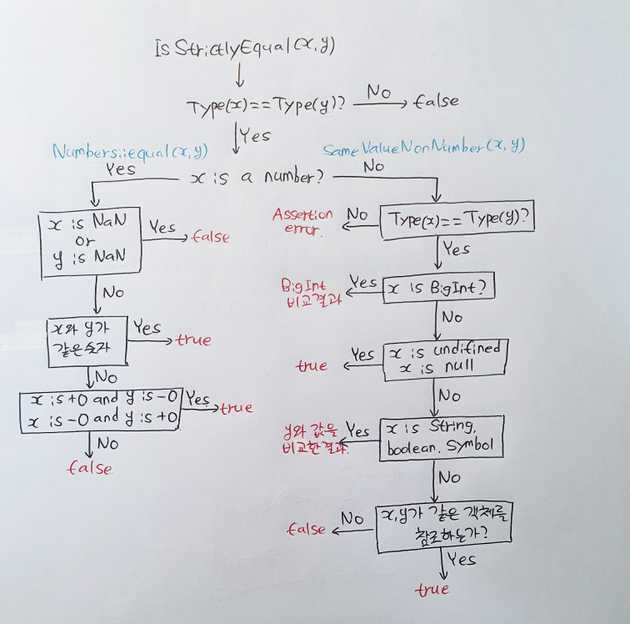 IsStrictlyEqual(x,y)
Type(x)==Type(y)? No false
Yes
Numbers::equal(x,y) SameValueNonNumber(x,y)
Yes x is a number? No
x is NaN
or
y is NaN
Yes false
No
x와 y가
같은숫자
Yes true
No
x is +0 and y is -0
x is -0 and y is +0
Yes true
No
false
Type(x)==Type(y)?
No Assertion
error.
Yes
x is BigInt?
Yes BigInt
비교결과
No
x is undifined
x is null
Yes true
No
x is String,
boolean, Symbol
Yes y와 값을
비교한결과
No
x,y가 같은 객체를
참조하는가?
No false
Yes
true